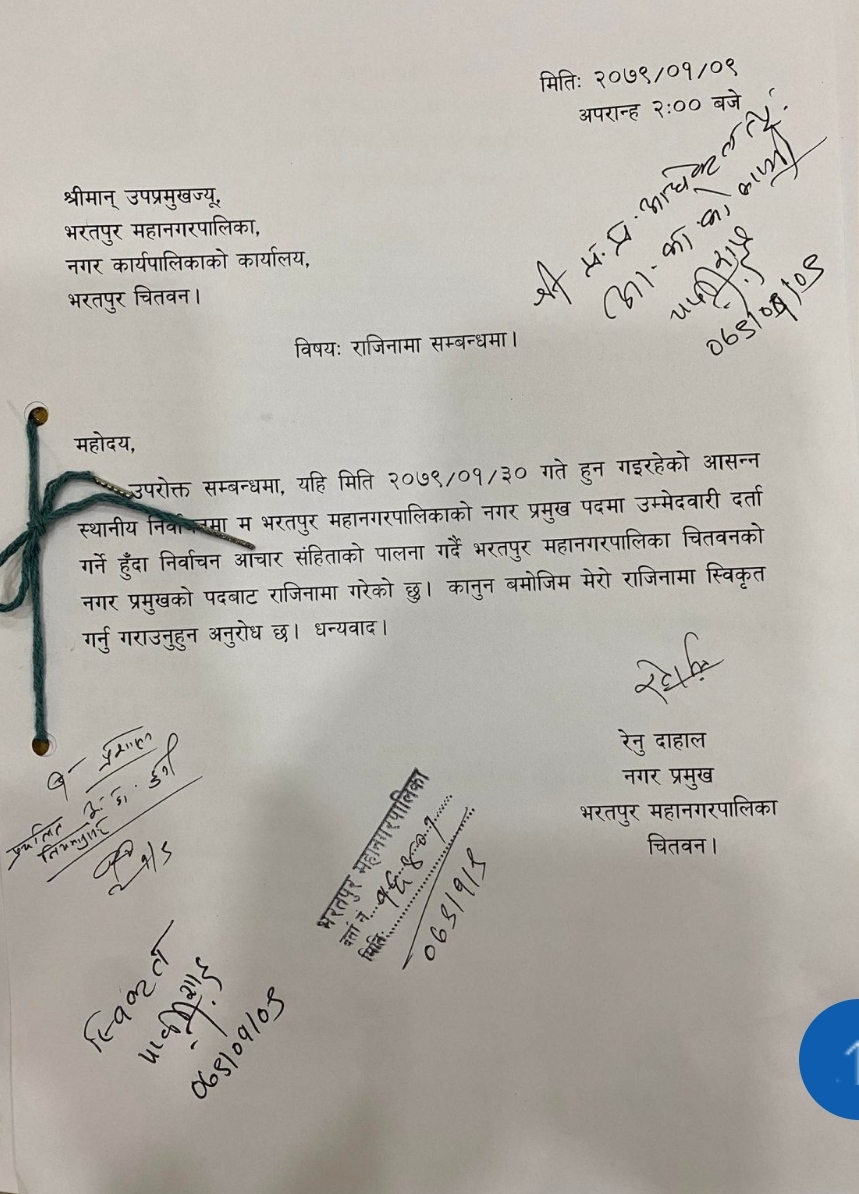 मितिः २०७९/०१/०९
अपरान्ह २:०० बजे
श्री प्र.प्र. अधिकृत ज्यू
०७९/०१/०९
श्रीमान् उपप्रमुखज्यू,
भरतपुर महानगरपालिका,
नगर कार्यपालिकाको कार्यालय,
भरतपुर चितवन।
विषयः राजिनामा सम्बन्धमा।
महोदय,
उपरोक्त सम्बन्धमा, यहि मिति २०७९/०१/३० गते हुन गइरहेको आसन्न
स्थानीय निर्वाचनमा म भरतपुर महानगरपालिकाको नगर प्रमुख पदमा उम्मेदवारी दर्ता
गर्ने हुँदा निर्वाचन आचार संहिताको पालना गर्दै भरतपुर महानगरपालिका चितवनको
नगर प्रमुखको पदबाट राजिनामा गरेको छु। कानुन बमोजिम मेरो राजिनामा स्विकृत
गर्नु गराउनुहुन अनुरोध छ। धन्यवाद।
रेनु दाहाल
नगर प्रमुख
भरतपुर महानगरपालिका
चितवन।
भरतपुर महानगरपालिका
दर्ता नं. १६४०१
मिति: ०७९/१/९
स्विकृत
पार्वती शाह
०७९/०१/०९